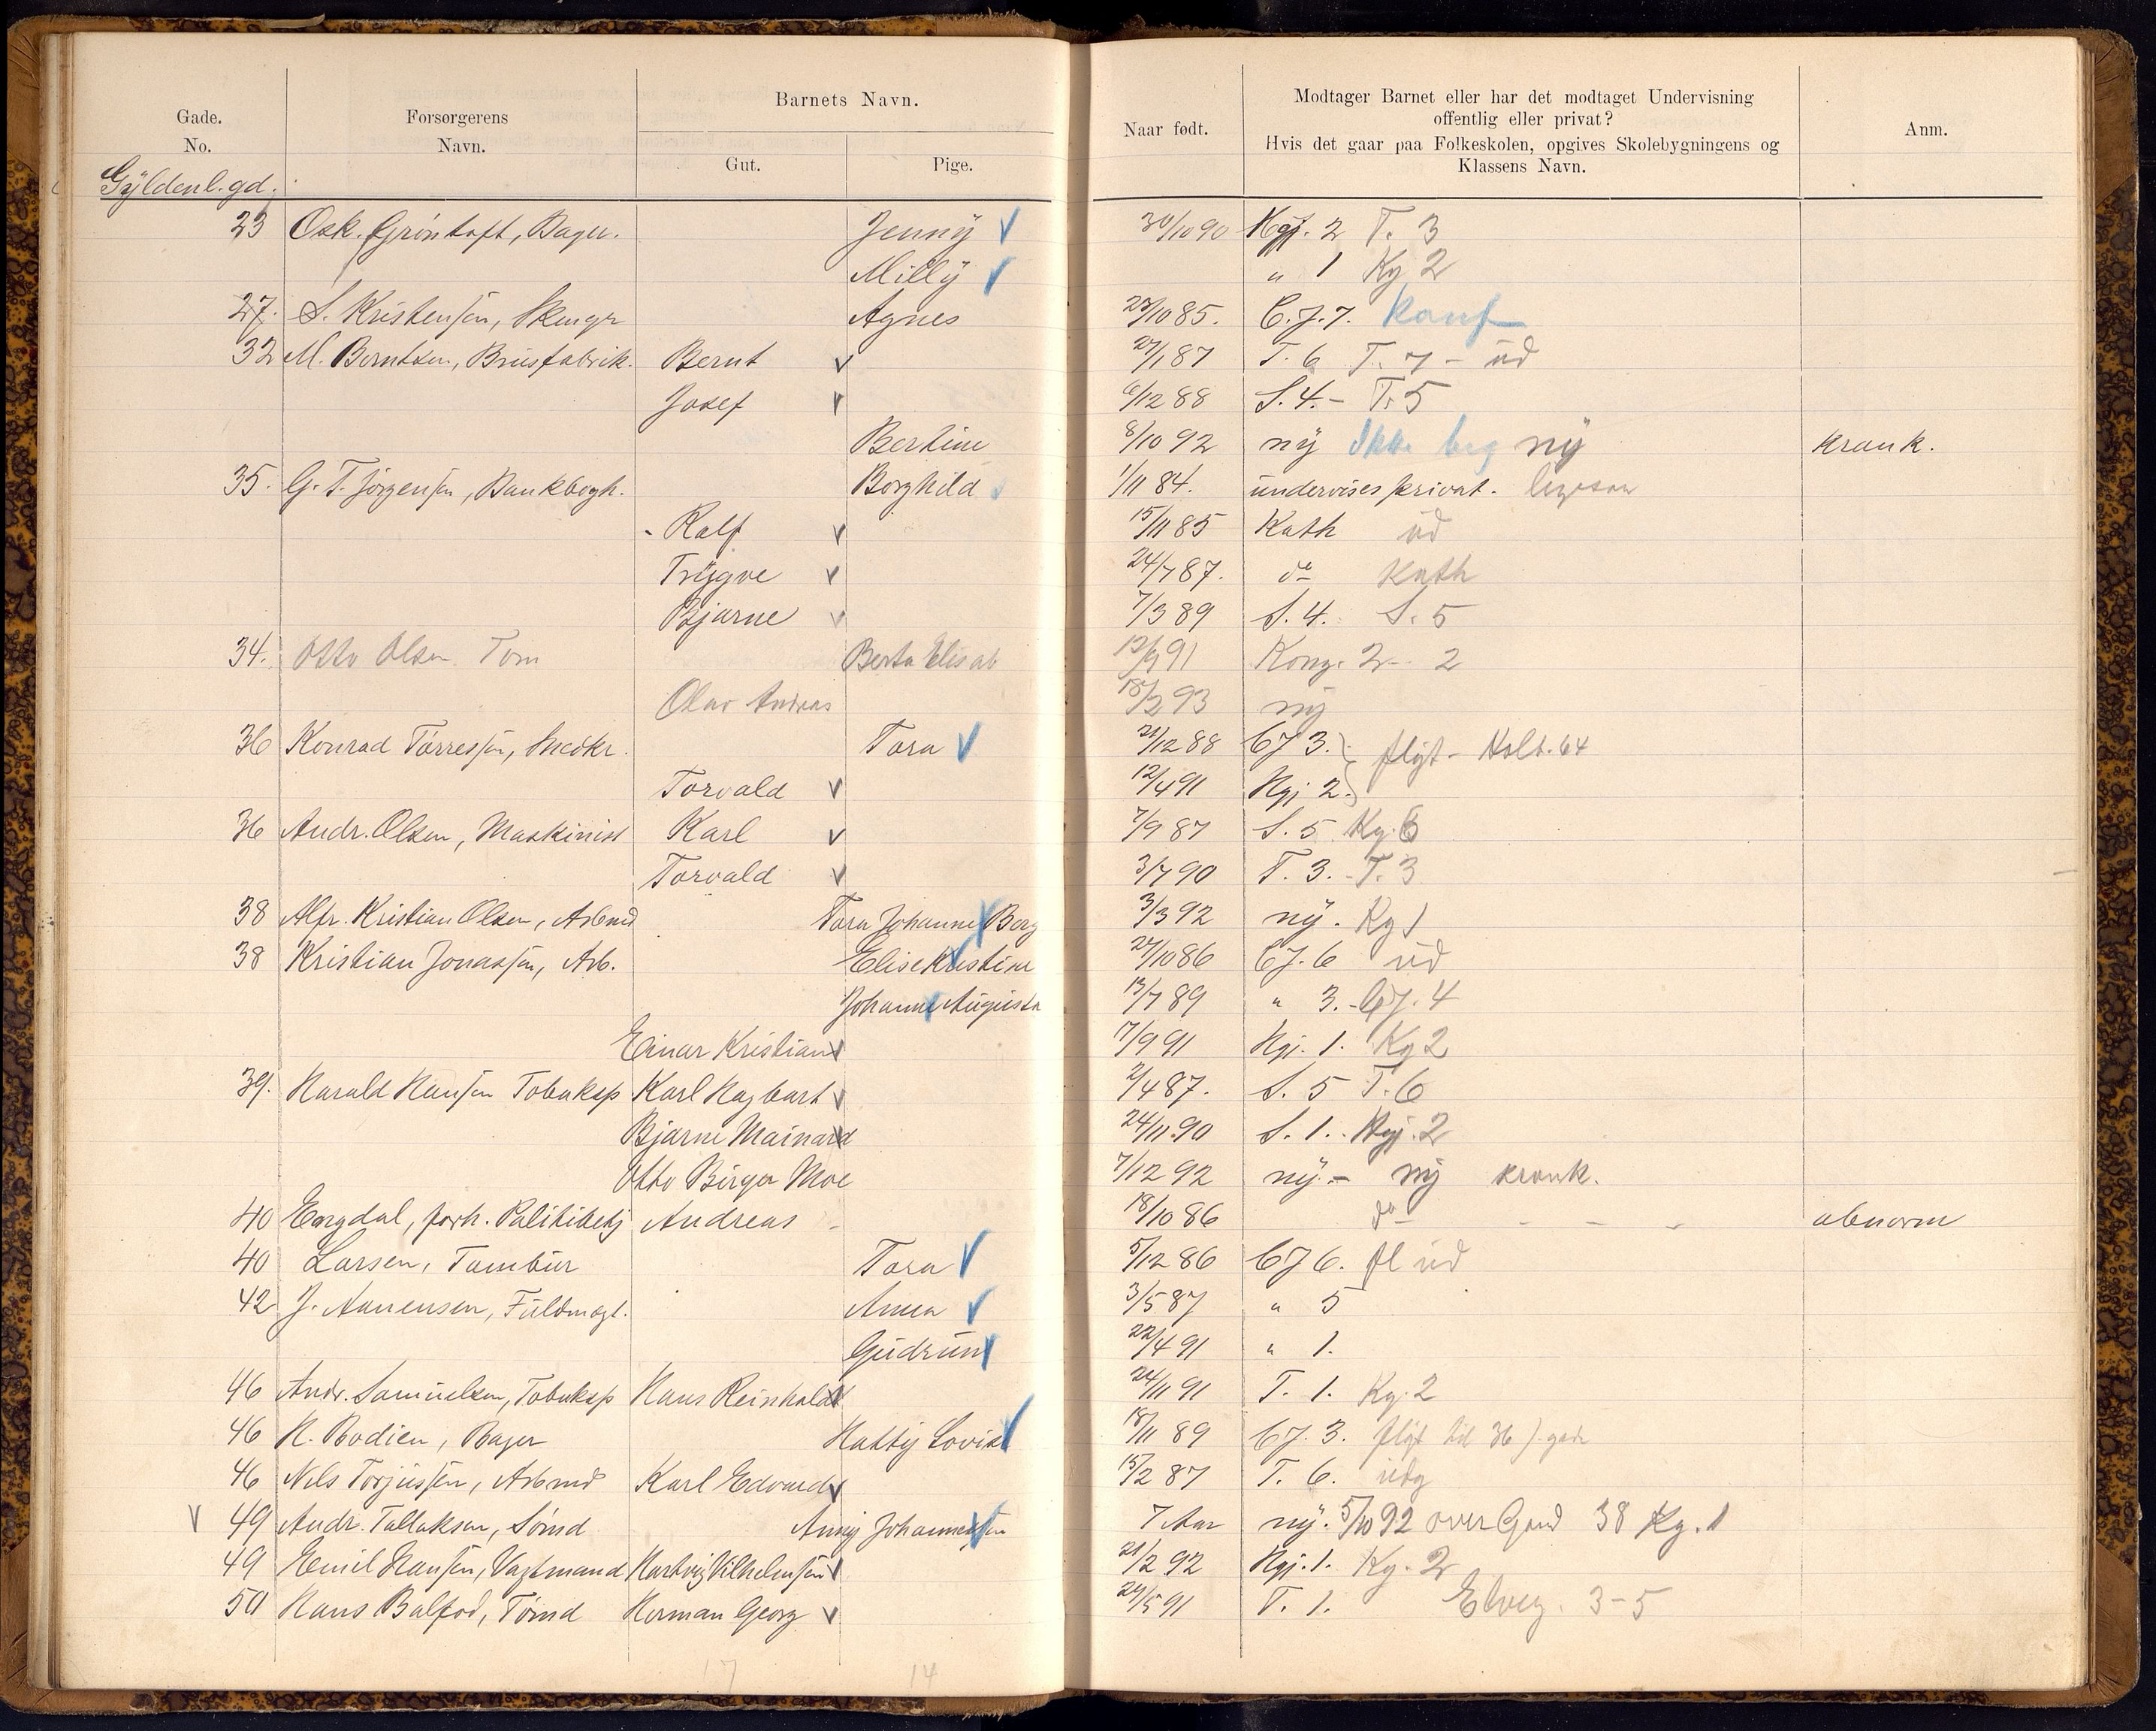 Gade.
No.
Forsørgerens
Navn.
Barnets Navn.
Gut.
Pige.
Naar født.
Modtager Barnet eller har det modtaget Undervisning
offentlig eller privat?
Hvis det gaar paa Folkeskolen, opgives Skolebygningens og
Klassens Navn.
Anm.
Gyldenl. gd.
23 Osk. Grøntoft, Bager. Jenny 30/10 90 Hgj. 2 T. 3
Milly " 1 Kg 2
27. S. Kristensen, Agnes 23/10 85. C.J.7. Konf
32 M. Berntsen, Brusfabrik. Bernt 27/1 87 T. 6 T. 7 - ud
Josef 6/12 88 S. 4. - T. 5
Bertine 8/10 92 ny Ikke beg ny krank.
35. G. T. Jørgensen, Bankbogh. Borghild 1/11 84. undervises privat.
Ralf 15/11 85 Kath ud
Trygve 24/7 87. do Kath
Bjarne 7/3 89 S. 4. S. 5
34. Otto Olsen Tøm Berta Elisab 12/9 91 Kong. 2 - 2
Olav Andreas 18/2 93 ny
36 Konrad Tørressen, Snedkr. Tora 21/12 88 CJ 3. flyt - Holb. 64
Torvald 12/4 91 Hgj 2.
36 Andr. Olsen, Maskinist Karl 7/9 87 S. 5 Kg. 6
Torvald 3/7 90 T. 3. - T. 3
38 Alfr. Kristian Olsen, Arbmd Tora Johanne Borg 3/3 92 ny. Kg 1
38 Kristian Jonassen, Arb. Elise Kristine 27/10 86 CJ. 6 ud
Johanne Augusta 13/7 89 " 3. - CJ. 4
Einar Kristian 17/9 91 Hgj. 1. Kg 2
39. Harald Hansen Tobaksp Karl Hagbart 2/4 87. S. 5 T. 6
Bjarne Mainard 24/11 90 S. 1. Hgj. 2
Otto Birger Moe 7/12 92 ny - ny krank.
40 Engdal, forh. Politibetj Andreas - 18/10 86 do - - - - abnorm
40 Larsen, Tambur Tora 5/12 86 CJ 6. fl ud
42 J. Aanensen, Fuldmægt. Anna 3/5 87 " 5
Gudrun 22/4 91 " 1.
46 Andr. Samuelsen, Tobaksp Hans Reinholdt 24/11 91 T. 1. Kg. 2
46 H. Bodien, Bager Hatty Lovise 18/11 89 CJ. 3. flyt til 36
46 Nils Torjussen, Arbmd Karl Edvard 15/2 87 T. 6. udg
49 Andr. Tallaksen, Sømd Anny Johannessen 7 Aar ny. 5/10 92 over Gaard 38 Kg. 1
49 Emil Hansen, Vagtmand Hartvig Vilhelmsen 21/2 92 Hgj. 1. Kg. 2
50 Hans Balfod, Tømd Herman Georg 24/5 91 T. 1. Elveg. 3-5
17 14